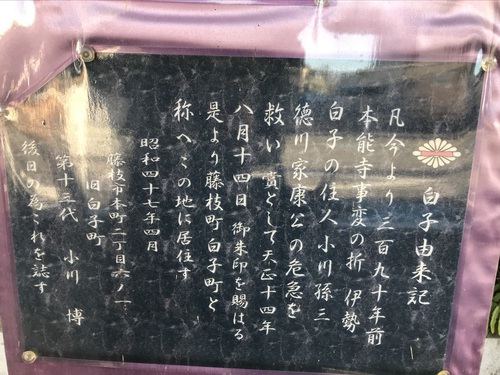 白子由来記
凡今より三百九十年前
本能寺事変の折 伊勢
白子の住人小川孫三
徳川家康公の危急を
救い賞として天正十四年
八月十四日 御朱印を賜はる
是より藤枝町白子町と
称へこの地に居住す
昭和四十七年四月
藤枝市本町二丁目六ノ一
旧白子町
第十三代 小川 博
後日の為これを誌す